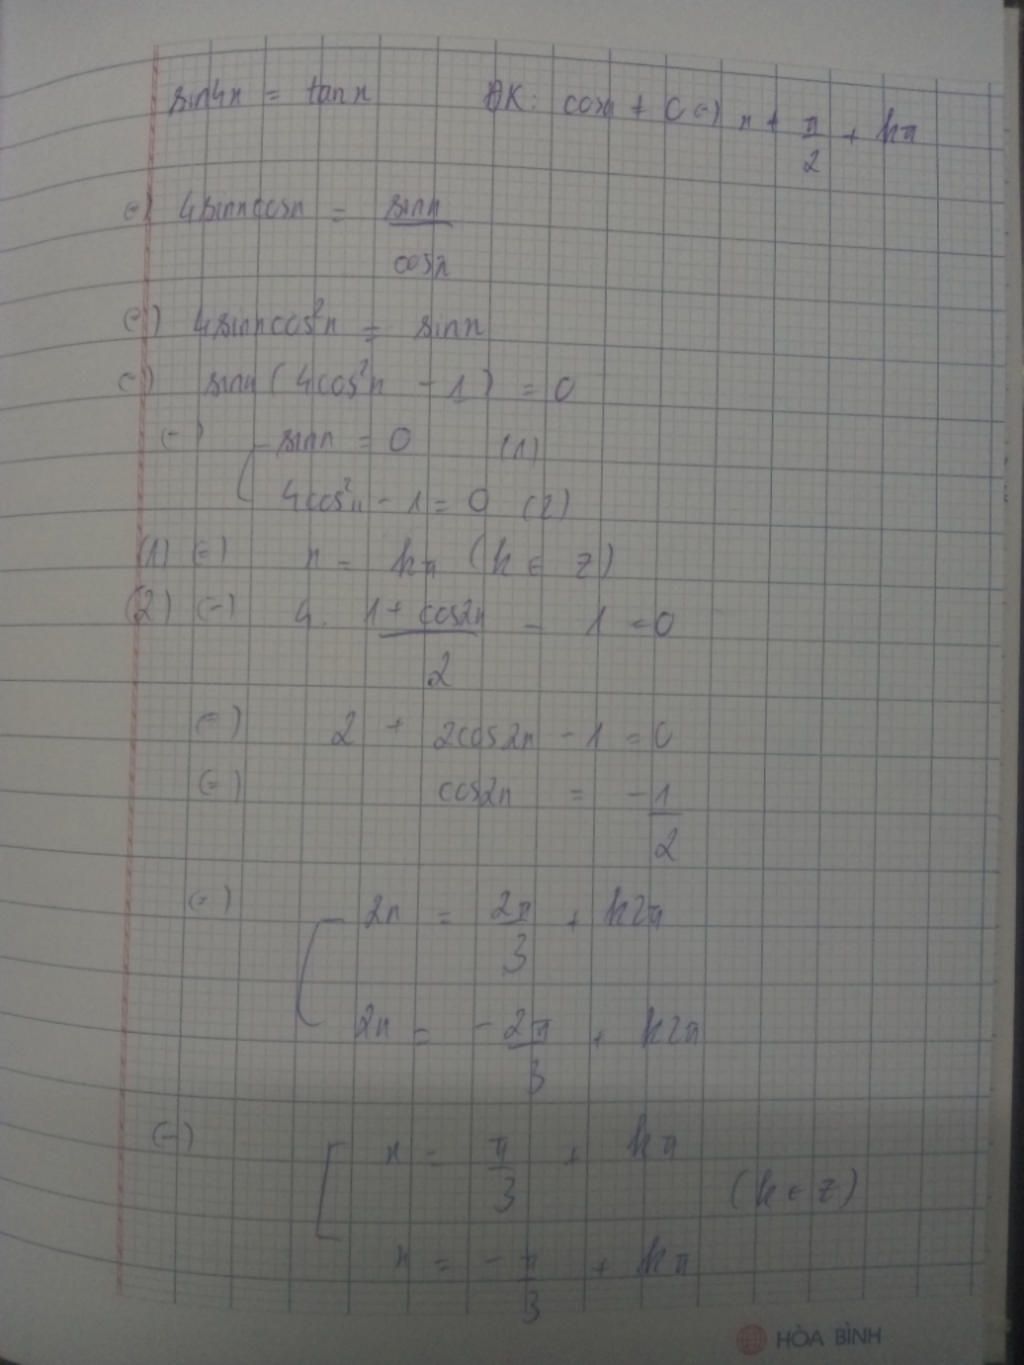 sin4x = tanx ĐK: cosx ≠ 0 (=) x ≠ π/2 + kπ
(=) 4sinxcosx = sinx/cosx
(=) 4sinxcos²x = sinx
(=) sinx(4cos²x - 1) = 0
(=) [ sinx = 0 (1)
4cos²x - 1 = 0 (2)
(1) (=) x = kπ (k ∈ Z)
(2) (=) 4. (1 + cos2x)/2 - 1 = 0
(=) 2 + 2cos2x - 1 = 0
(=) cos2x = -1/2
(=) [ 2x = 2π/3 + k2π
2x = -2π/3 + k2π
(=) [ x = π/3 + kπ
(k ∈ Z)
x = -π/3 + kπ
HÒA BÌNH